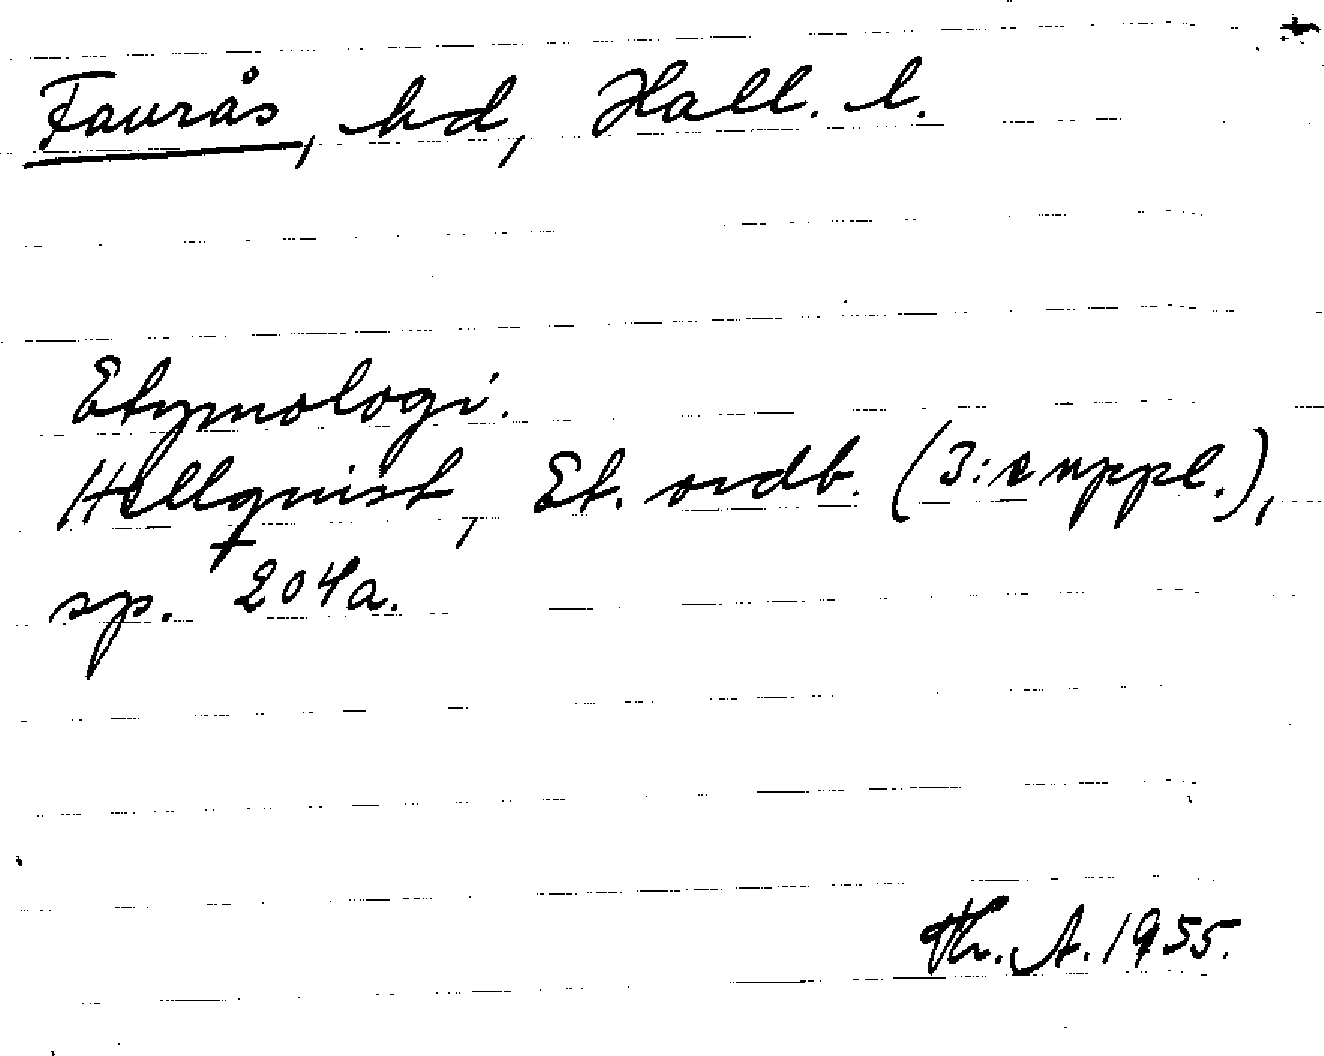 Faurås, hd, Hall. l.
Etymologi.
Hellquist, Et. ordb. (3:e uppl.),
sp. 204a.
Th. A. 1955.